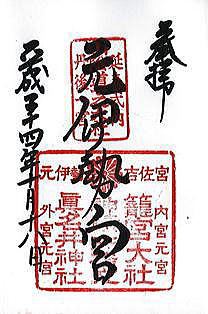 奉拝
元伊勢宮
平成二十四年十月十八日
延喜式内
丹後
宮 内宮元宮
籠宮大社
吉佐
伊勢
眞名井神社
元 外宮元宮